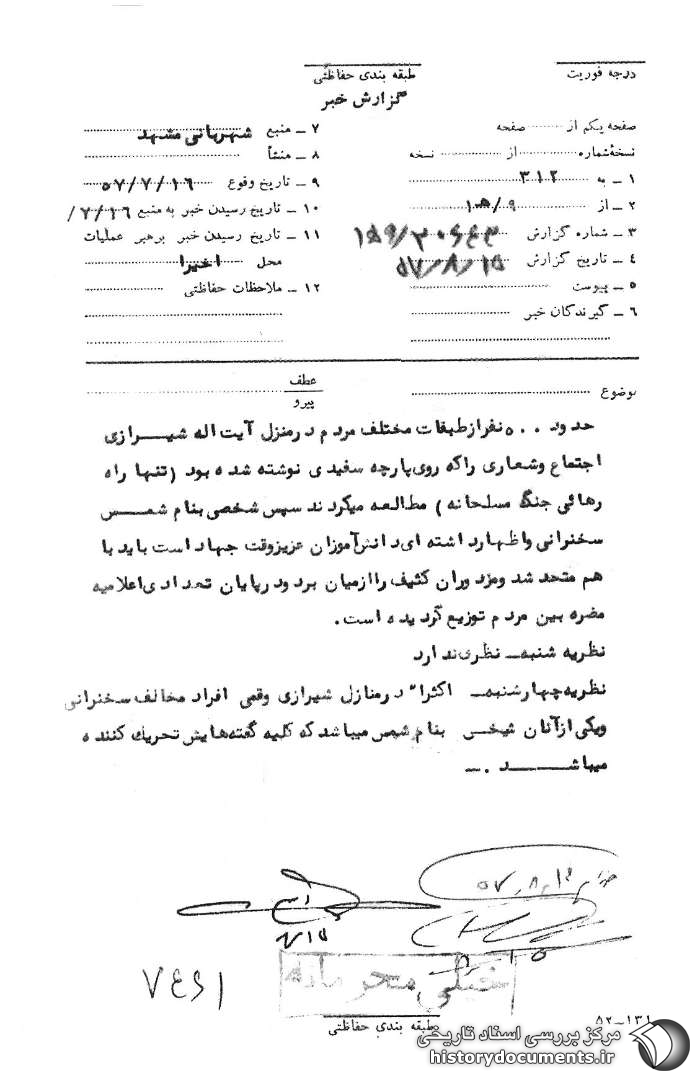 درجه فوریت
طبقه بندی حفاظتی
گزارش خبر
صفحه یکم از ......... صفحه
نسخهٔ شماره ......... از ......... نسخه
۱ ــ به ۳۱۲
۲ ــ از ۹/ه۱
۳ ــ شماره گزارش
۴ ــ تاریخ گزارش ۵۷/۸/۱۵
۵ ــ پیوست
۶ ــ گیرندگان خبر
۷ ــ منبع شهربانی مشهد
۸ ــ منشأ
۹ ــ تاریخ وقوع ۵۷/۷/۱۶
۱۰ ــ تاریخ رسیدن خبر به منبع ۷/۱۶/
۱۱ ــ تاریخ رسیدن خبر برهبر عملیات
محل اخیرا
۱۲ ــ ملاحظات حفاظتی
موضوع
عطف
پیرو
حدود ۵۰۰ نفراز طبقات مختلف مردم درمنزل آیت اله شیـــرازی
اجتماع وشعاری راکه روی پارچه سفیدی نوشته شده بود (تنها راه
رهائی جنگ مسلحانه) مطالعه میکردند سپس شخصی بنام شمـــس
سخنرانی واظهارداشته ای دانش‌آموزان عزیزوقت جهاد است باید با
هم متحد شد ومزدوران کثیف راازمیان برد ودرپایان تعدادی اعلامیه
مضره بین مردم توزیع گردیده است.
نظریه شنبه‌ــ نظری ندارد
نظریه چهارشنبه‌ــ اکثرا" درمنازل شیرازی وقمی افراد مخالف سخنرانی
ویکی ازآنان شیخی بنام شمس میباشد که کلیه گفته‌هایش تحریک کننده
میباشـــــد .ــ
۵۷/۸/۱۶
۸/۱۵
خیلی محرمانه
طبقه بندی حفاظتی
۱۳۱-۸۲
مرکز بررسی اسناد تاریخی
historydocuments.ir